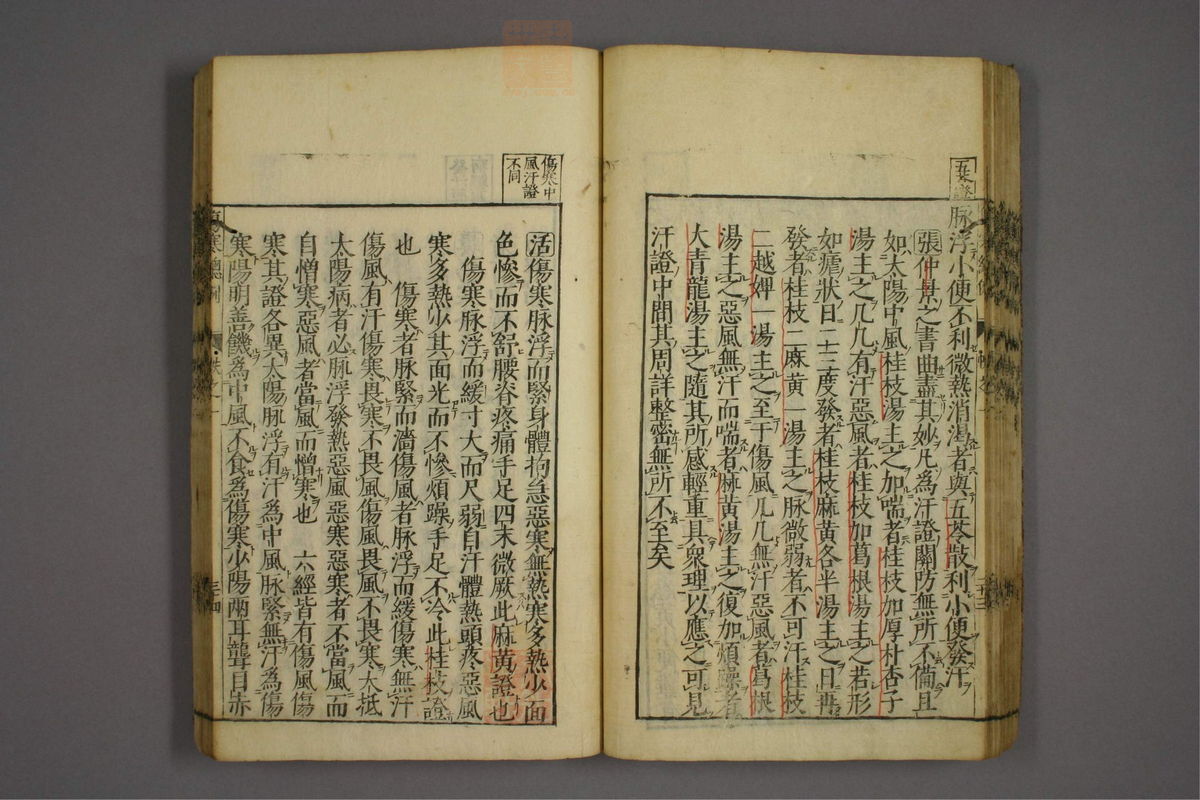 五苓證
脉浮小便不利微熱消渴者與五苓散利小便發汗
張仲景之書曲盡其妙凡為汗證關防無所不備且
如太陽中風桂枝湯主之加喘者桂枝加厚朴杏子
湯主之几几有汗惡風者桂枝加葛根湯主之若形
如瘧狀日二三度發者桂枝麻黃各半湯主之日再
發者桂枝二麻黃一湯主之脉微弱者不可汗桂枝
二越婢一湯主之至于傷風几几無汗惡風者葛根
湯主之惡風無汗而喘者麻黃湯主之復加煩躁者
大青龍湯主之隨其所感輕重具衆理以應之可見
汗證中間其周詳整密無所不至矣
三十三
傷寒中
風汗證
不同
活傷寒脉浮而緊身體拘急惡寒無熱寒多熱少面
色慘而不舒腰脊疼痛手足四末微厥此麻黃證也
傷寒脉浮而緩寸大而尺弱自汗體熱頭疼惡風
寒多熱少其面光而不慘煩躁手足不冷此桂枝證
也 傷寒者脉緊而濇傷風者脉浮而緩傷寒無汗
傷風有汗傷寒畏寒不畏風傷風畏風不畏寒大抵
太陽病者必脉浮發熱惡風惡寒惡寒者不當風而
自憎寒惡風者當風而憎寒也 六經皆有傷風傷
寒其證各異太陽脉浮有汗為中風脉緊無汗為傷
寒陽明善饑為中風不食為傷寒少陽兩耳聾目赤
傷寒總例
三十四